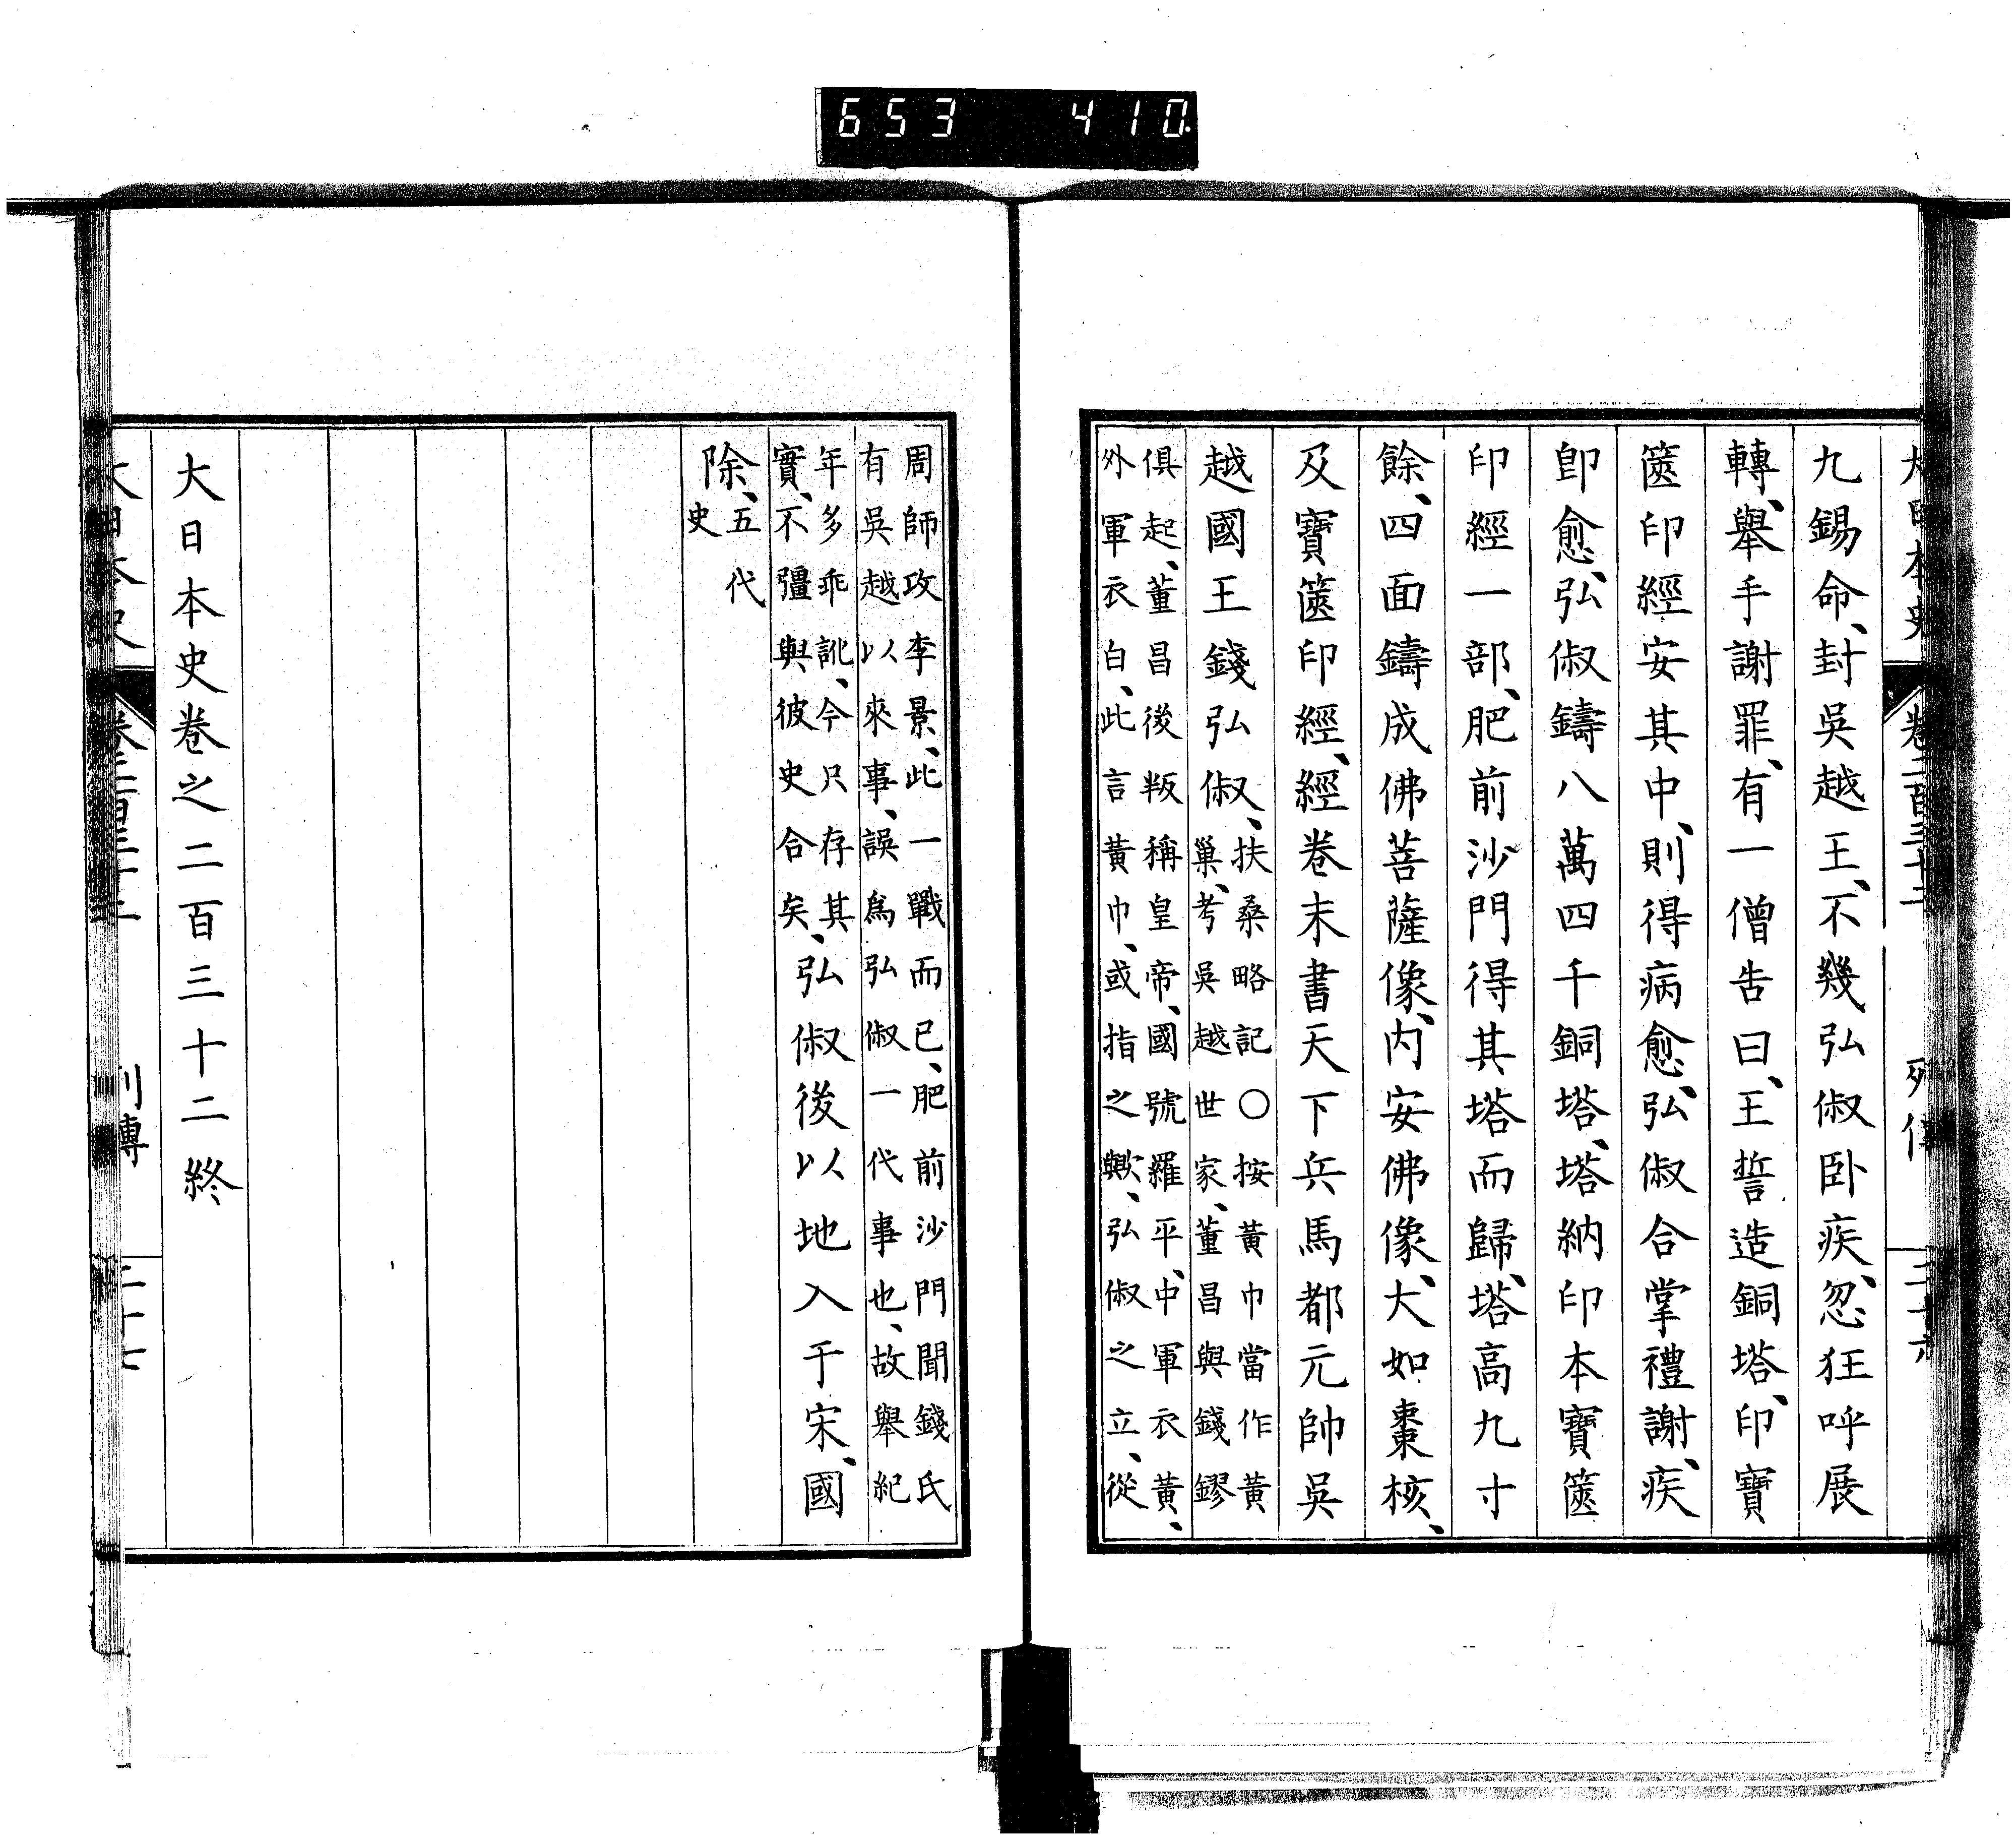 653 410
九錫命、封吳越王、不幾弘俶卧疾、忽狂呼展
轉、舉手謝罪、有一僧告曰、王誓造銅塔、印寶
篋印經安其中、則得病愈、弘俶合掌禮謝、疾
卽愈、弘俶鑄八萬四千銅塔、塔納印本寶篋
印經一部、肥前沙門得其塔而歸、塔高九寸
餘、四面鑄成佛菩薩像、內安佛像、大如棗核、
及寶篋印經、經卷末書天下兵馬都元帥吳
越國王錢弘俶、扶桑略記〇按黃巾當作黃
巢、考吳越世家、董昌與錢鏐
俱起、董昌後叛稱皇帝、國號羅平、中軍衣黃、
外軍衣白、此言黃巾、或指之歟、弘俶之立、從
周師攻李景、此一戰而已、肥前沙門聞錢氏
有吳越以來事、誤爲弘俶一代事也、故舉紀
年多乖訛、今只存其
實、不彊與彼史合矣、弘俶後以地入于宋、國
除、五代
史
大日本史卷之二百三十二終
大日本史 卷二百三十二 列傳 二十七